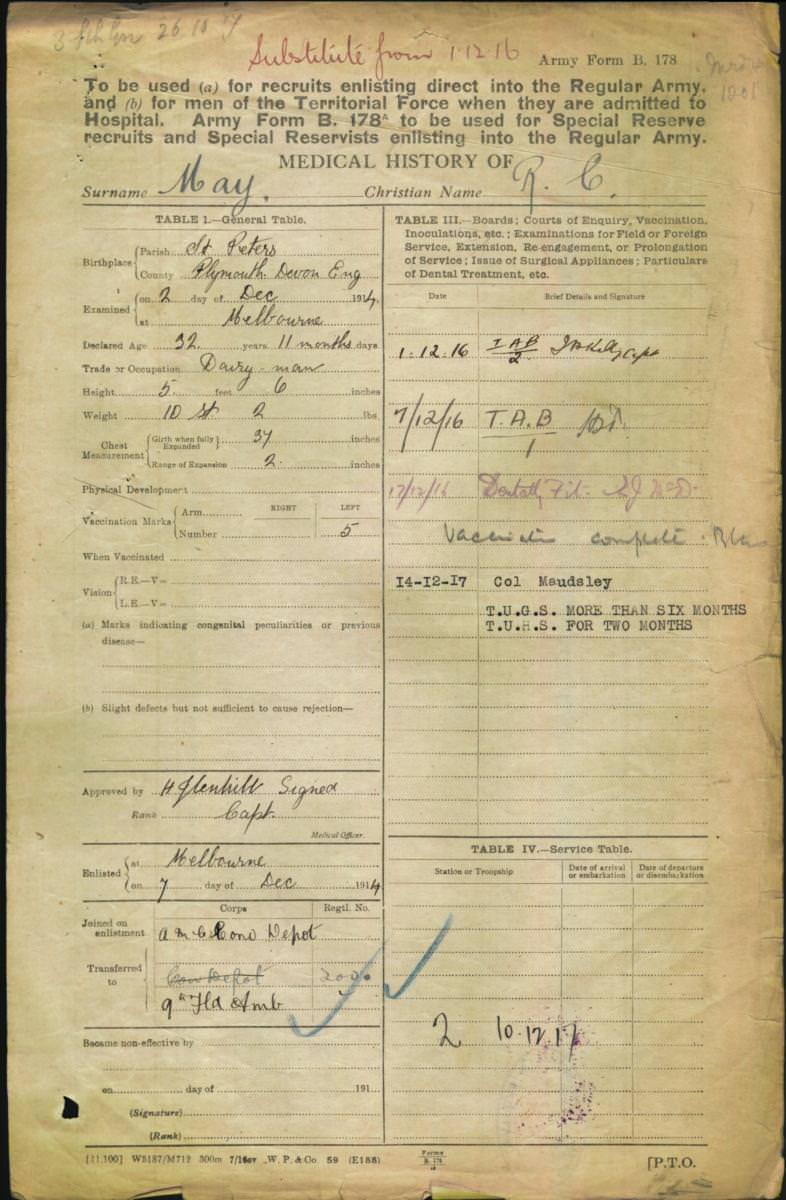 26 10 17
Substitute from 1.12.16
Army Form B. 178
To be used (a) for recruits enlisting direct into the Regular Army,
and (b) for men of the Territorial Force when they are admitted to
Hospital. Army Form B. 178A to be used for Special Reserve
recruits and Special Reservists enlisting into the Regular Army.
MEDICAL HISTORY OF
Surname May. Christian Name R. C.
TABLE I.—General Table.
Birthplace
Parish St Peters
County Plymouth Devon Eng
Examined
on 2 day of Dec 1914.
at Melbourne
Declared Age 32 years 11 months days
Trade or Occupation Dairy-man
Height 5 feet 6 inches
Weight 10 st 2 lbs.
Chest Measurement
Girth when fully Expanded 37 inches
Range of Expansion 2. inches
Physical Development
RIGHT LEFT
Vaccination Marks
Arm
Number 5
When Vaccinated
Vision
R.E.—V=
L.E.—V=
(a) Marks indicating congenital peculiarities or previous
disease—
(b) Slight defects but not sufficient to cause rejection—
Approved by Signed
Rank Capt.
Medical Officer.
Enlisted
at Melbourne
on 7 day of Dec 1914
Corps Regtl. No.
Joined on enlistment A M C Conv Depot
Transferred to Con Depot
9th Fld Amb
Became non-effective by
on day of 191
(Signature)
(Rank)
TABLE III.—Boards; Courts of Enquiry, Vaccination,
Inoculations, etc.; Examinations for Field or Foreign
Service, Extension, Re-engagement, or Prolongation
of Service; Issue of Surgical Appliances; Particulars
of Dental Treatment, etc.
Date Brief Details and Signature
1.12.16 TAB/2 Capt
7/12/16 T.A.B/1
17/12/16 Dentally Fit
Vaccination complete
14-12-17 Col Maudsley
T.U.G.S. MORE THAN SIX MONTHS
T.U.H.S. FOR TWO MONTHS
TABLE IV.—Service Table.
Station or Troopship
Date of arrival or embarkation
Date of departure or disembarkation
2 10.12.17
[21.100] W5187/M712 300m 7/16 W. P. & Co 59 (E188)
Forms
B. 178
[P.T.O.